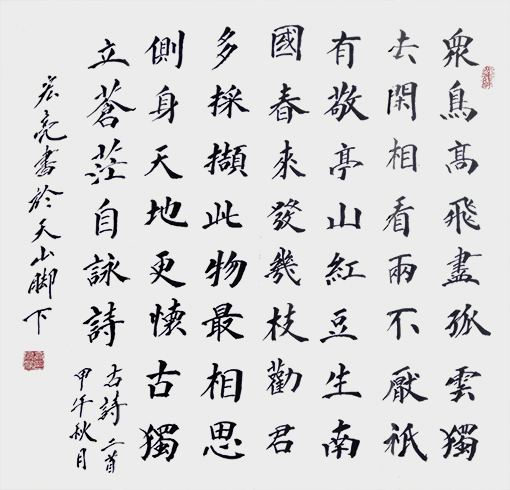 衆鳥髙飛盡孤雲獨
去閑相看兩不厭祇
有敬亭山紅豆生南
國春來發幾枝勸君
多採擷此物最相思
側身天地更懷古獨
立蒼茫自詠詩
古詩二首
甲午秋月
宏亮書於天山脚下